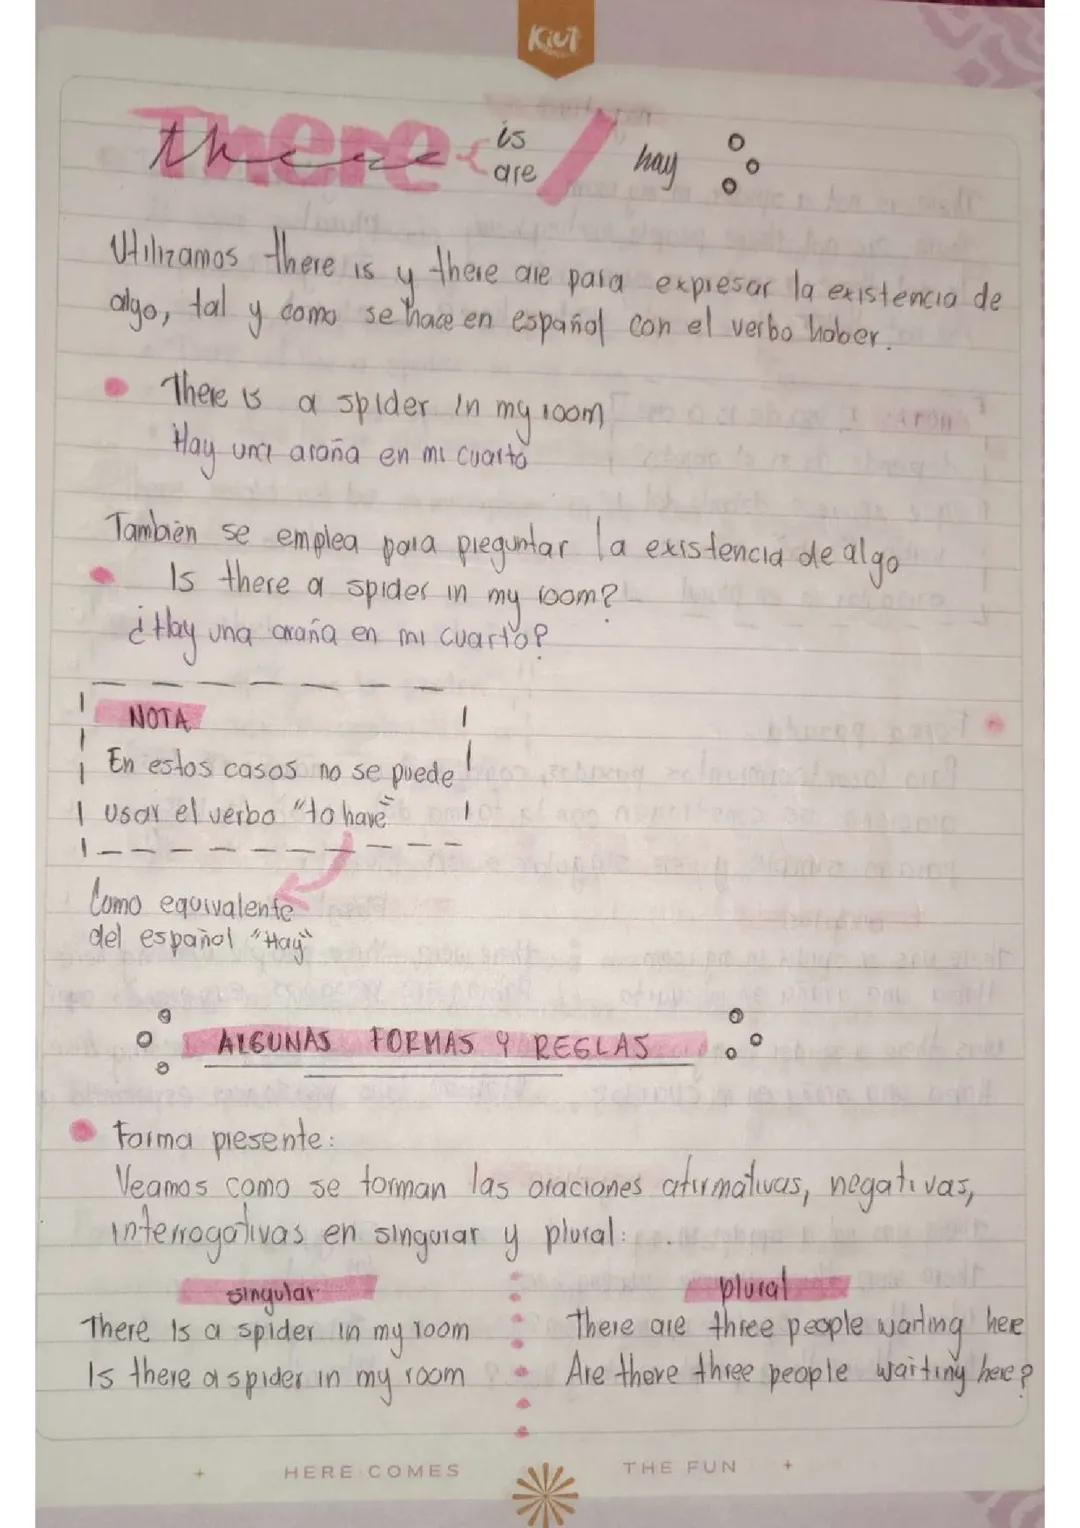 Kiut
There is / hay
are
Utilizamos there is y there are para expresar la existencia de
algo, tal y como se hace en español con el verbo haber.
There is a spider in my room
Hay una araña en mi cuarto
También se emplea para preguntar la existencia de algo
Is there a spider in my room?
¿Hay una araña en mi cuarto?
NOTA
En estos casos no se puede
usar el verbo "to have"
Como equivalente
del español "Hay"
ALGUNAS FORMAS Y REGLAS
Forma presente:
Veamos como se forman las oraciones afirmativas, negativas,
interrogativas en singular y plural:
singular
There Is a spider in my room
Is there a spider in my room
plural
There are three people waiting here
Are there three people waiting here?
HERE COMES THE FUN